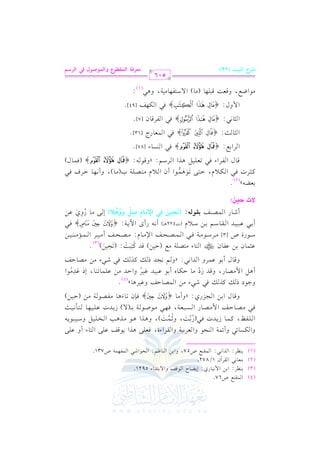 شرح البيت (٩٢)
معرفة المقطوع والموصول في الرسم
٦٠٥
مواضع، وقعت قبلها (ما) الاستفهامية، وهي(١):
الأول: ﴿مَالِ هَٰذَا ٱلۡكِتَٰبِ﴾ في الكهف [٤٩].
الثاني: ﴿مَالِ هَٰذَا ٱلرَّسُولِ﴾ في الفرقان [٧].
الثالث: ﴿فَمَالِ ٱلَّذِينَ كَفَرُواْ﴾ في المعارج [٣٦].
الرابع: ﴿فَمَالِ هَٰٓؤُلَآءِ ٱلۡقَوۡمِ﴾ في النساء [٧٨].
قال الفراء في تعليل هذا الرسم: «وقوله: ﴿فَمَالِ هَٰٓؤُلَآءِ ٱلۡقَوۡمِ﴾ (فمال)
كثرت في الكلام، حتى تَوَهَّموا أن اللام متصلة ب(ما)، وأنها حرف في
بعضه»(٢).
لات حين:
أشار المصنف بقوله: (تحين في الإمام صِلْ وَوُهِّلَا) إلى ما رُوِيَ عن
أبي عبيد القاسم بن سلام (ت٢٢٤هـ) أنه رأى الآية: ﴿وَّلَاتَ حِينَ مَنَاصٖ﴾ في
سورة ص [٣] مرسومة في المصحف الإمام: مصحف أمير المؤمنين
عثمان بن عفان ﷺ التاء متصلة مع (حين) قد كُتِبَتْ: (تَحِينَ)(٣).
وقال أبو عمرو الداني: «ولم نجد ذلك كذلك في شيء من مصاحف
أهل الأمصار، وقد رَدَّ ما حكاه أبو عبيد غيرُ واحد من علمائنا، إذ عَدِموا
وجود ذلك كذلك في شيء من المصاحف وغيرها»(٤).
وقال ابن الجزري: «وأما ﴿وَّلَاتَ حِينَ﴾ فإن تاءها مفصولة من (حين)
في مصاحف الأمصار السبعة، فهي موصولة ب(لا) زيدت عليها لتأنيث
اللفظ، كما زيدت في(رُبَّتَ، وثُمَّتَ)، وهذا هو مذهب الخليل وسيبويه
والكسائي وأئمة النحو والعربية والقراءة، فعلى هذا يوقف على التاء أو على
(١) ينظر: الداني: المقنع ص٧٥، وابن الناظم: الحواشي المفهمة ص١٣٧.
(٢) معاني القرآن ٢٧٨/١.
(٣) ينظر: ابن الأنباري: إيضاح الوقف والابتداء ٢٩٥/١.
(٤) المقنع ص٧٦.